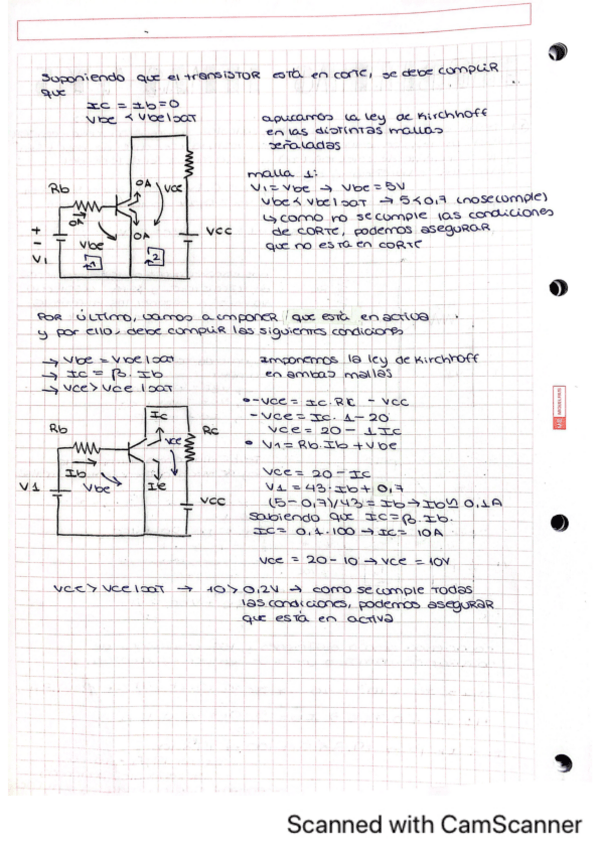 Suponiendo que el transistor está en corte, se debe cumplir
que
Ic = Ib = 0
Vbe < Vbe|sat
aplicamos la ley de Kirchhoff
en las distintas mallas
señaladas
malla 1:
V1 = Vbe → Vbe = 5V
Vbe < Vbe|sat → 5 < 0,7 (no se cumple)
↳ como no se cumple las condiciones
de corte, podemos asegurar
que no está en corte
Rb
0A
Vce
0A
0A
Vbe
+
-
V1
1
2
Vcc
Por último, vamos a imponer que está en activa
y por ello, debe cumplir las siguientes condiciones
→ Vbe = Vbe|sat
→ Ic = β · Ib
→ Vce > Vce|sat
Imponemos la ley de Kirchhoff
en ambas mallas
• -Vce = Ic · Rc - Vcc
-Vce = Ic · 1 - 20
Vce = 20 - 1Ic
• V1 = Rb · Ib + Vbe
Ic
Rb
Rc
Vce
Ib
Vbe
Ie
V1
Vcc
Vce = 20 - Ic
V1 = 43 · Ib + 0,7
(5 - 0,7)/43 = Ib → Ib ≃ 0,1A
Sabiendo que Ic = β · Ib.
Ic = 0,1 · 100 → Ic = 10A
Vce = 20 - 10 → Vce = 10V
Vce > Vce|sat → 10 > 0,2V → como se cumple todas
las condiciones, podemos asegurar
que está en activa
Scanned with CamScanner